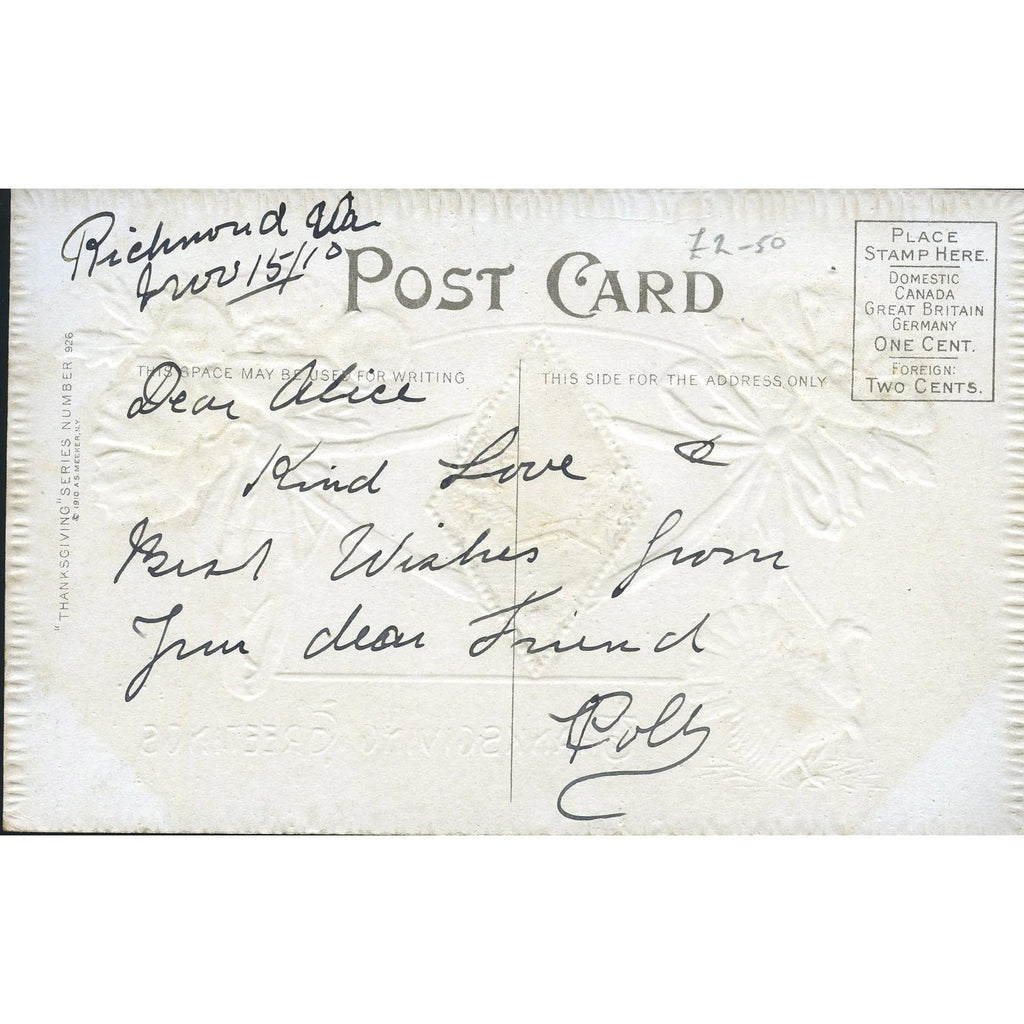 Richmond Va
Nov 15/10
£2-50
POST CARD
PLACE
STAMP HERE.
DOMESTIC
CANADA
GREAT BRITAIN
GERMANY
ONE CENT.
FOREIGN:
TWO CENTS.
"THANKSGIVING" SERIES NUMBER 926
© 1910 A.S. MEEKER, N.Y.
THIS SPACE MAY BE USED FOR WRITING
THIS SIDE FOR THE ADDRESS ONLY
Dear Alice
Kind Love &
Best Wishes from
Your dear Friend
THANKSGIVING GREETINGS